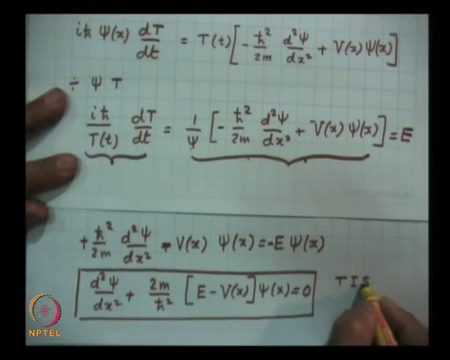 iħ Ψ(x) dT/dt = T(t) [ -ħ²/2m d²Ψ/dx² + V(x) Ψ(x) ]
÷ Ψ T
iħ/T(t) dT/dt = 1/Ψ [ -ħ²/2m d²Ψ/dx² + V(x) Ψ(x) ] = E
+ ħ²/2m d²Ψ/dx² - V(x) Ψ(x) = -E Ψ(x)
d²Ψ/dx² + 2m/ħ² [ E - V(x) ] Ψ(x) = 0 TIS
NPTEL